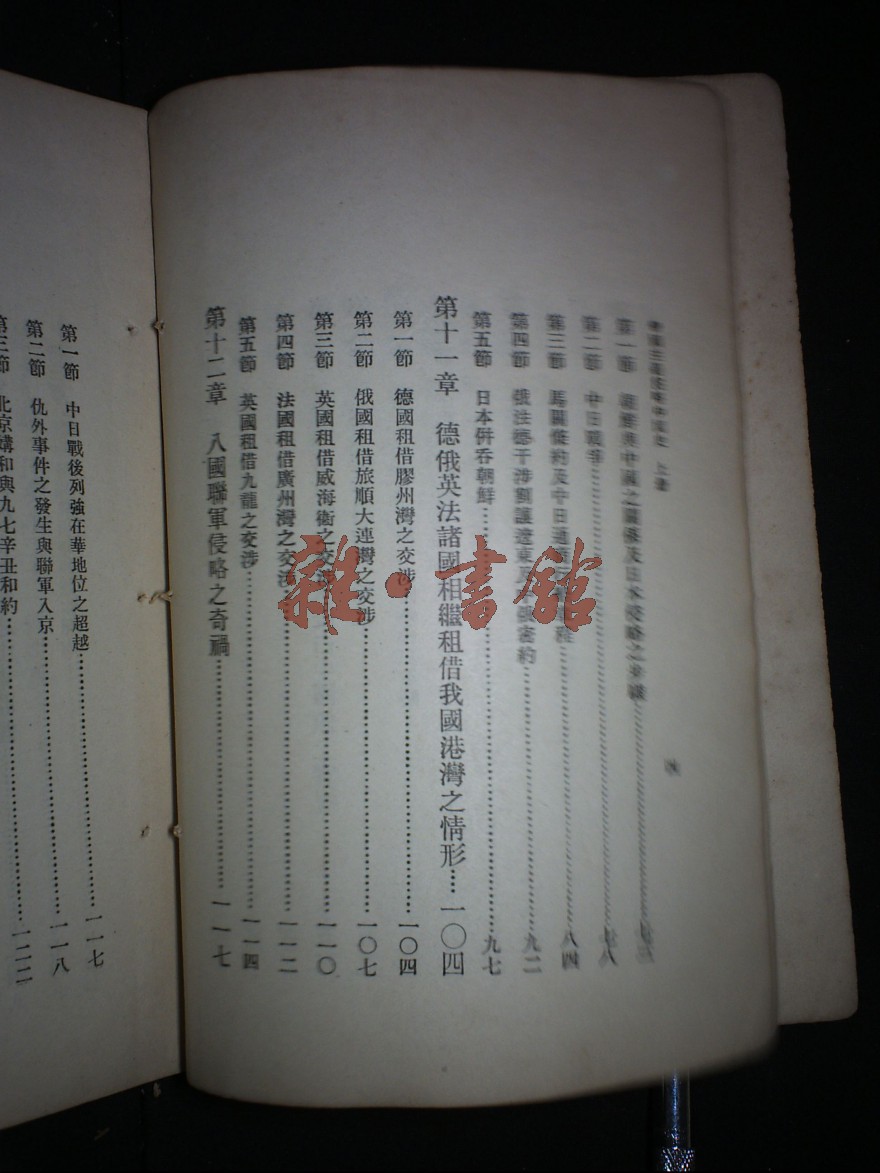 上卷
第一節 朝鮮與中國之關係及日本侵略之步驟……七三
第二節 中日戰爭……七八
第三節 馬關條約及中日通商……八四
第四節 俄法德干涉割讓遼東及中俄密約……九二
第五節 日本併吞朝鮮……九七
第十一章 德俄英法諸國相繼租借我國港灣之情形……一〇四
第一節 德國租借膠州灣之交涉……一〇四
第二節 俄國租借旅順大連灣之交涉……一〇七
第三節 英國租借威海衛之交涉……一一〇
第四節 法國租借廣州灣之交涉……一一二
第五節 英國租借九龍之交涉……一一四
第十二章 八國聯軍侵略之奇禍……一一七
第一節 中日戰後列強在華地位之超越……一一七
第二節 仇外事件之發生與聯軍入京……一一八
第三節 北京媾和與九七辛丑和約……一二二
雜·書館